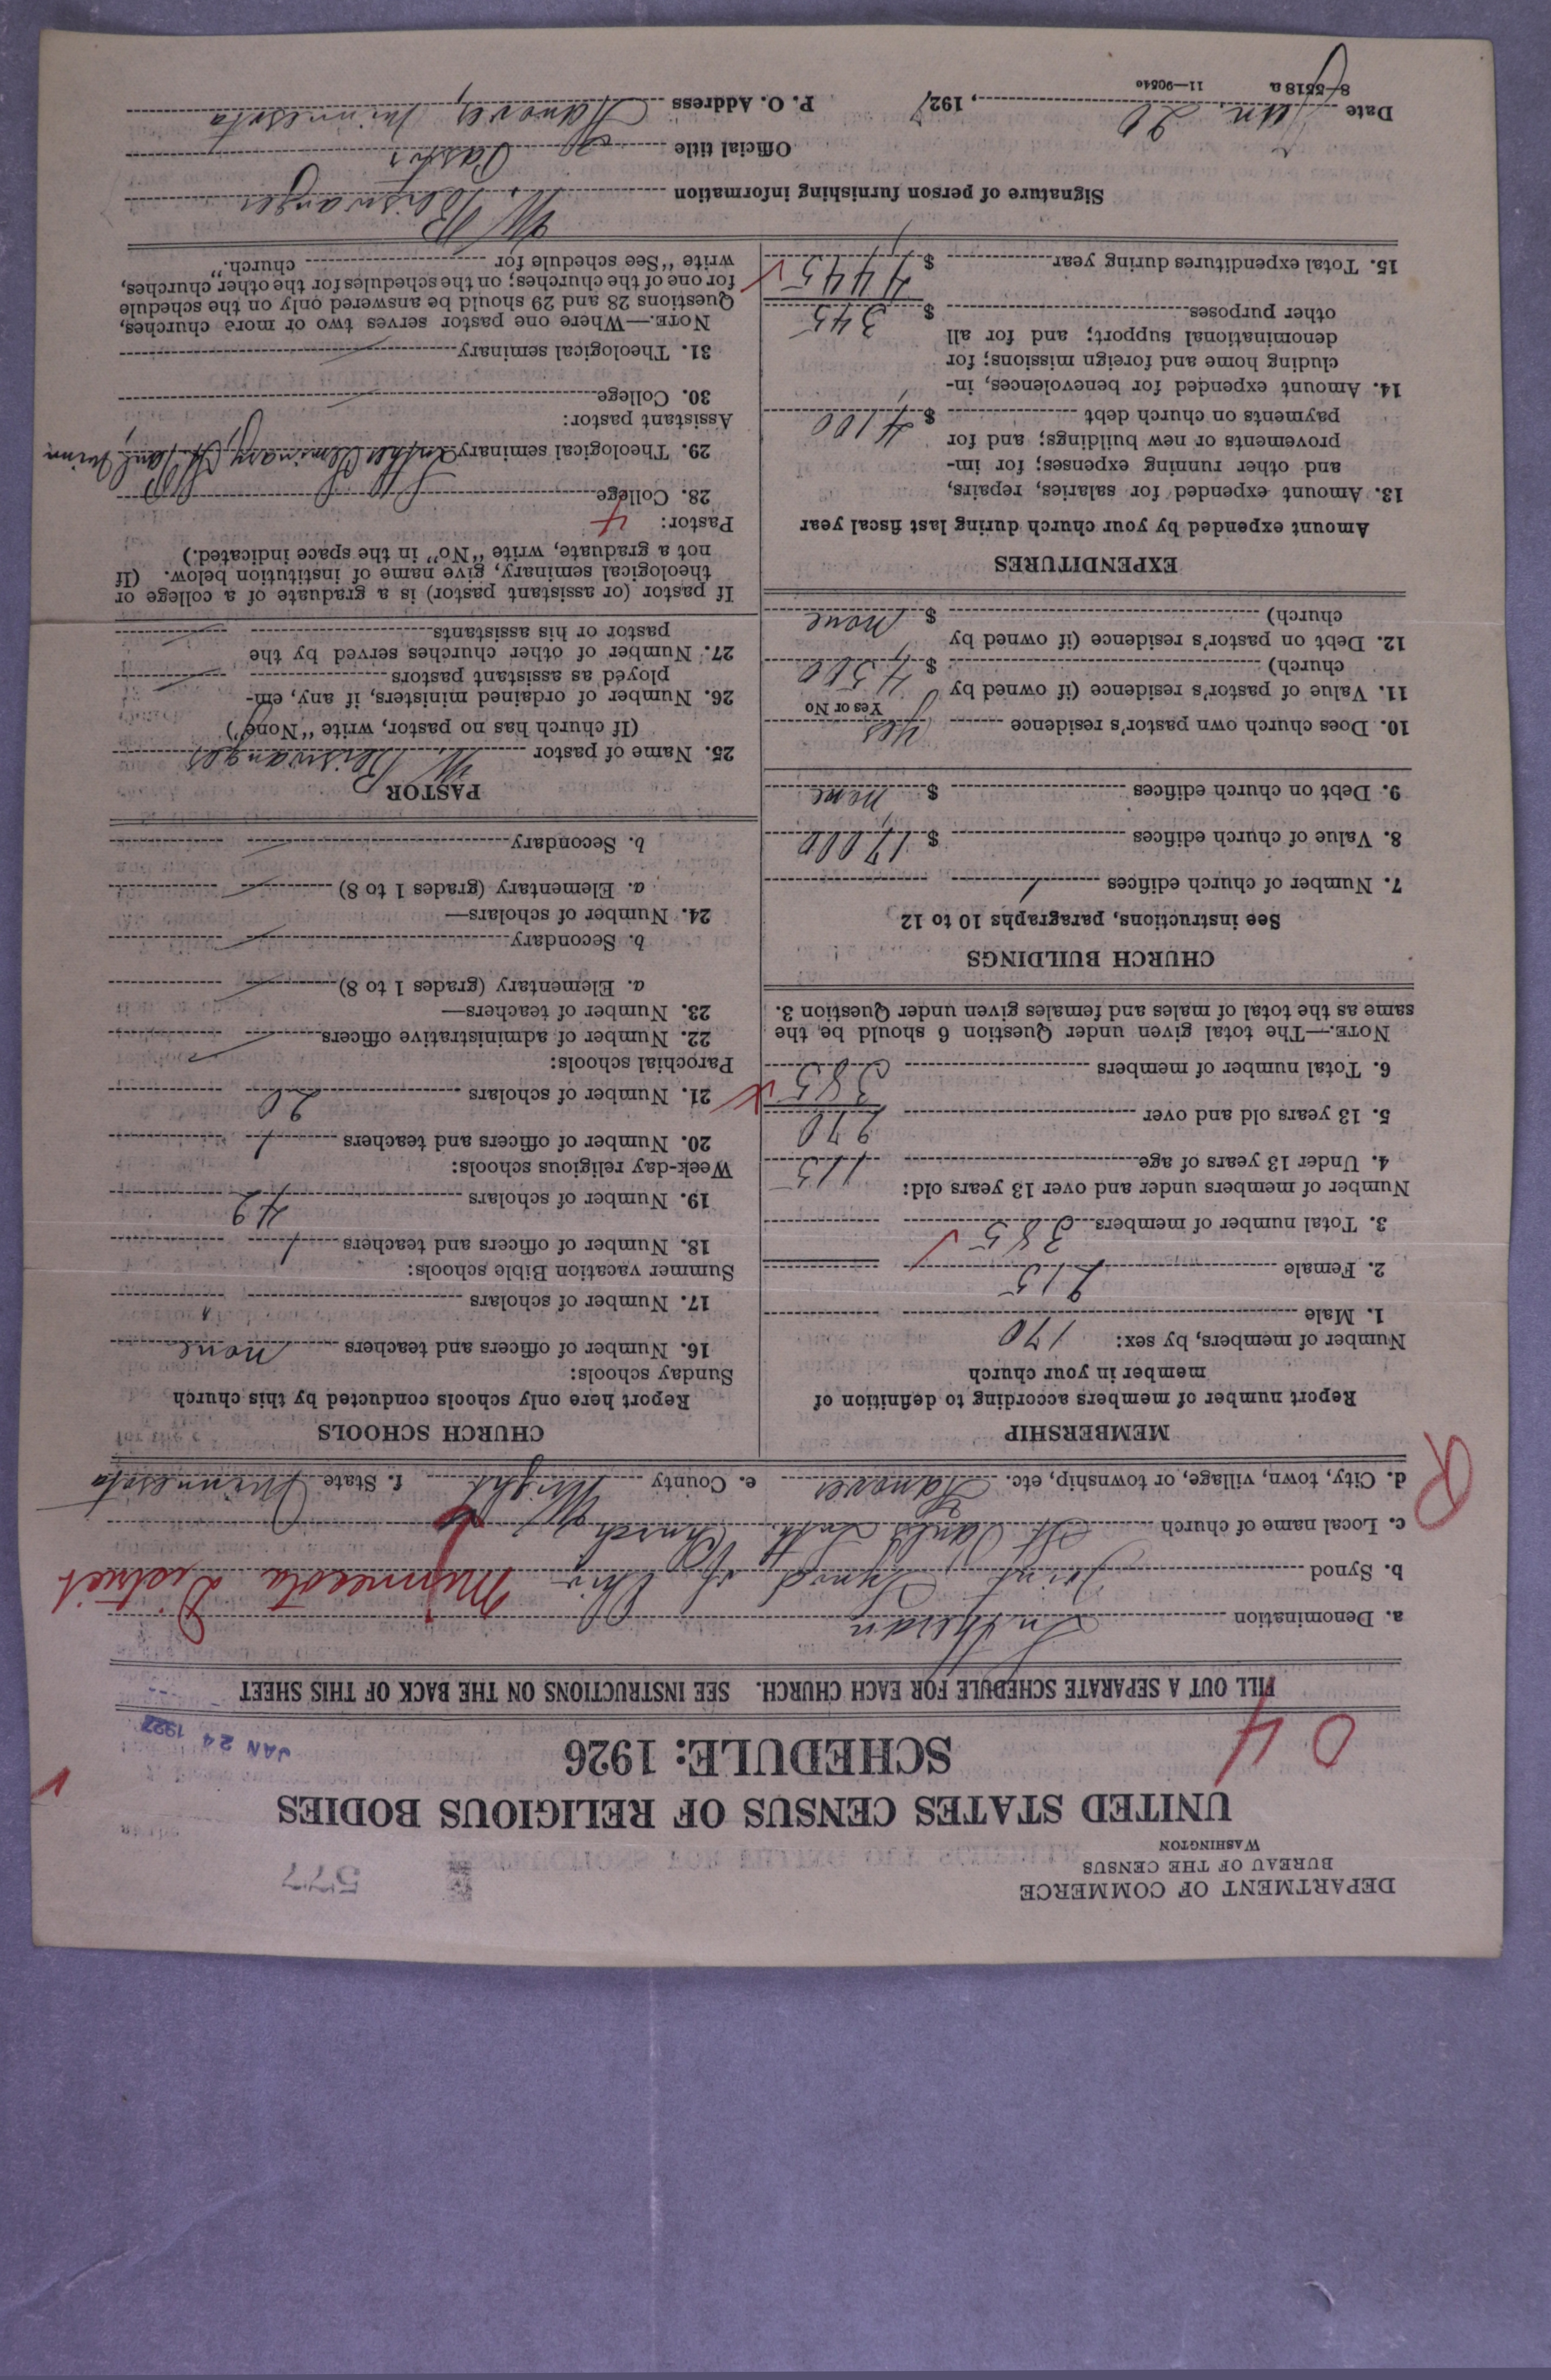 DEPARTMENT OF COMMERCE
BUREAU OF THE CENSUS
WASHINGTON
577
UNITED STATES CENSUS OF RELIGIOUS BODIES
SCHEDULE: 1926
04
JAN 24 1927
FILL OUT A SEPARATE SCHEDULE FOR EACH CHURCH. SEE INSTRUCTIONS ON THE BACK OF THIS SHEET
a. Denomination Lutheran
b. Synod Joint Synod of Ohio Minnesota District
c. Local name of church St Pauls Luth. Church
d. City, town, village, or township, etc. Hanover e. County Wright f. State Minnesota
R
MEMBERSHIP
Report number of members according to definition of
member in your church
Number of members, by sex:
1. Male 170
2. Female 215
3. Total number of members 385
Number of members under and over 13 years old:
4. Under 13 years of age 115
5. 13 years old and over 270
6. Total number of members 385
NOTE.—The total given under Question 6 should be the
same as the total of males and females given under Question 3.
CHURCH BUILDINGS
See instructions, paragraphs 10 to 12
7. Number of church edifices 1
8. Value of church edifices $ 17000
9. Debt on church edifices $ none
10. Does church own pastor's residence yes
Yes or No
11. Value of pastor's residence (if owned by
church) $ 4500
12. Debt on pastor's residence (if owned by
church) $ none
EXPENDITURES
Amount expended by your church during last fiscal year
13. Amount expended for salaries, repairs,
and other running expenses; for im-
provements or new buildings; and for
payments on church debt $ 4100
14. Amount expended for benevolences, in-
cluding home and foreign missions; for
denominational support; and for all
other purposes $ 345
15. Total expenditures during year $ 4445
CHURCH SCHOOLS
Report here only schools conducted by this church
Sunday schools:
16. Number of officers and teachers none
17. Number of scholars
Summer vacation Bible schools:
18. Number of officers and teachers 1
19. Number of scholars 42
Week-day religious schools:
20. Number of officers and teachers 1
21. Number of scholars 26
Parochial schools:
22. Number of administrative officers
23. Number of teachers—
a. Elementary (grades 1 to 8)
b. Secondary
24. Number of scholars—
a. Elementary (grades 1 to 8)
b. Secondary
PASTOR
25. Name of pastor W.
(If church has no pastor, write "None")
26. Number of ordained ministers, if any, em-
ployed as assistant pastors
27. Number of other churches served by the
pastor or his assistants
If pastor (or assistant pastor) is a graduate of a college or
theological seminary, give name of institution below. (If
not a graduate, write "No" in the space indicated.)
Pastor:
28. College
29. Theological seminary Luther Seminary, St Paul, Minn
Assistant pastor:
30. College
31. Theological seminary
NOTE.—Where one pastor serves two or more churches,
Questions 28 and 29 should be answered only on the schedule
for one of the churches; on the schedules for the other churches,
write "See schedule for church."
Signature of person furnishing information W.
Official title Pastor
Date Jan. 20, 1927 P. O. Address Hanover, Minnesota
8—5518 a 11—9054a